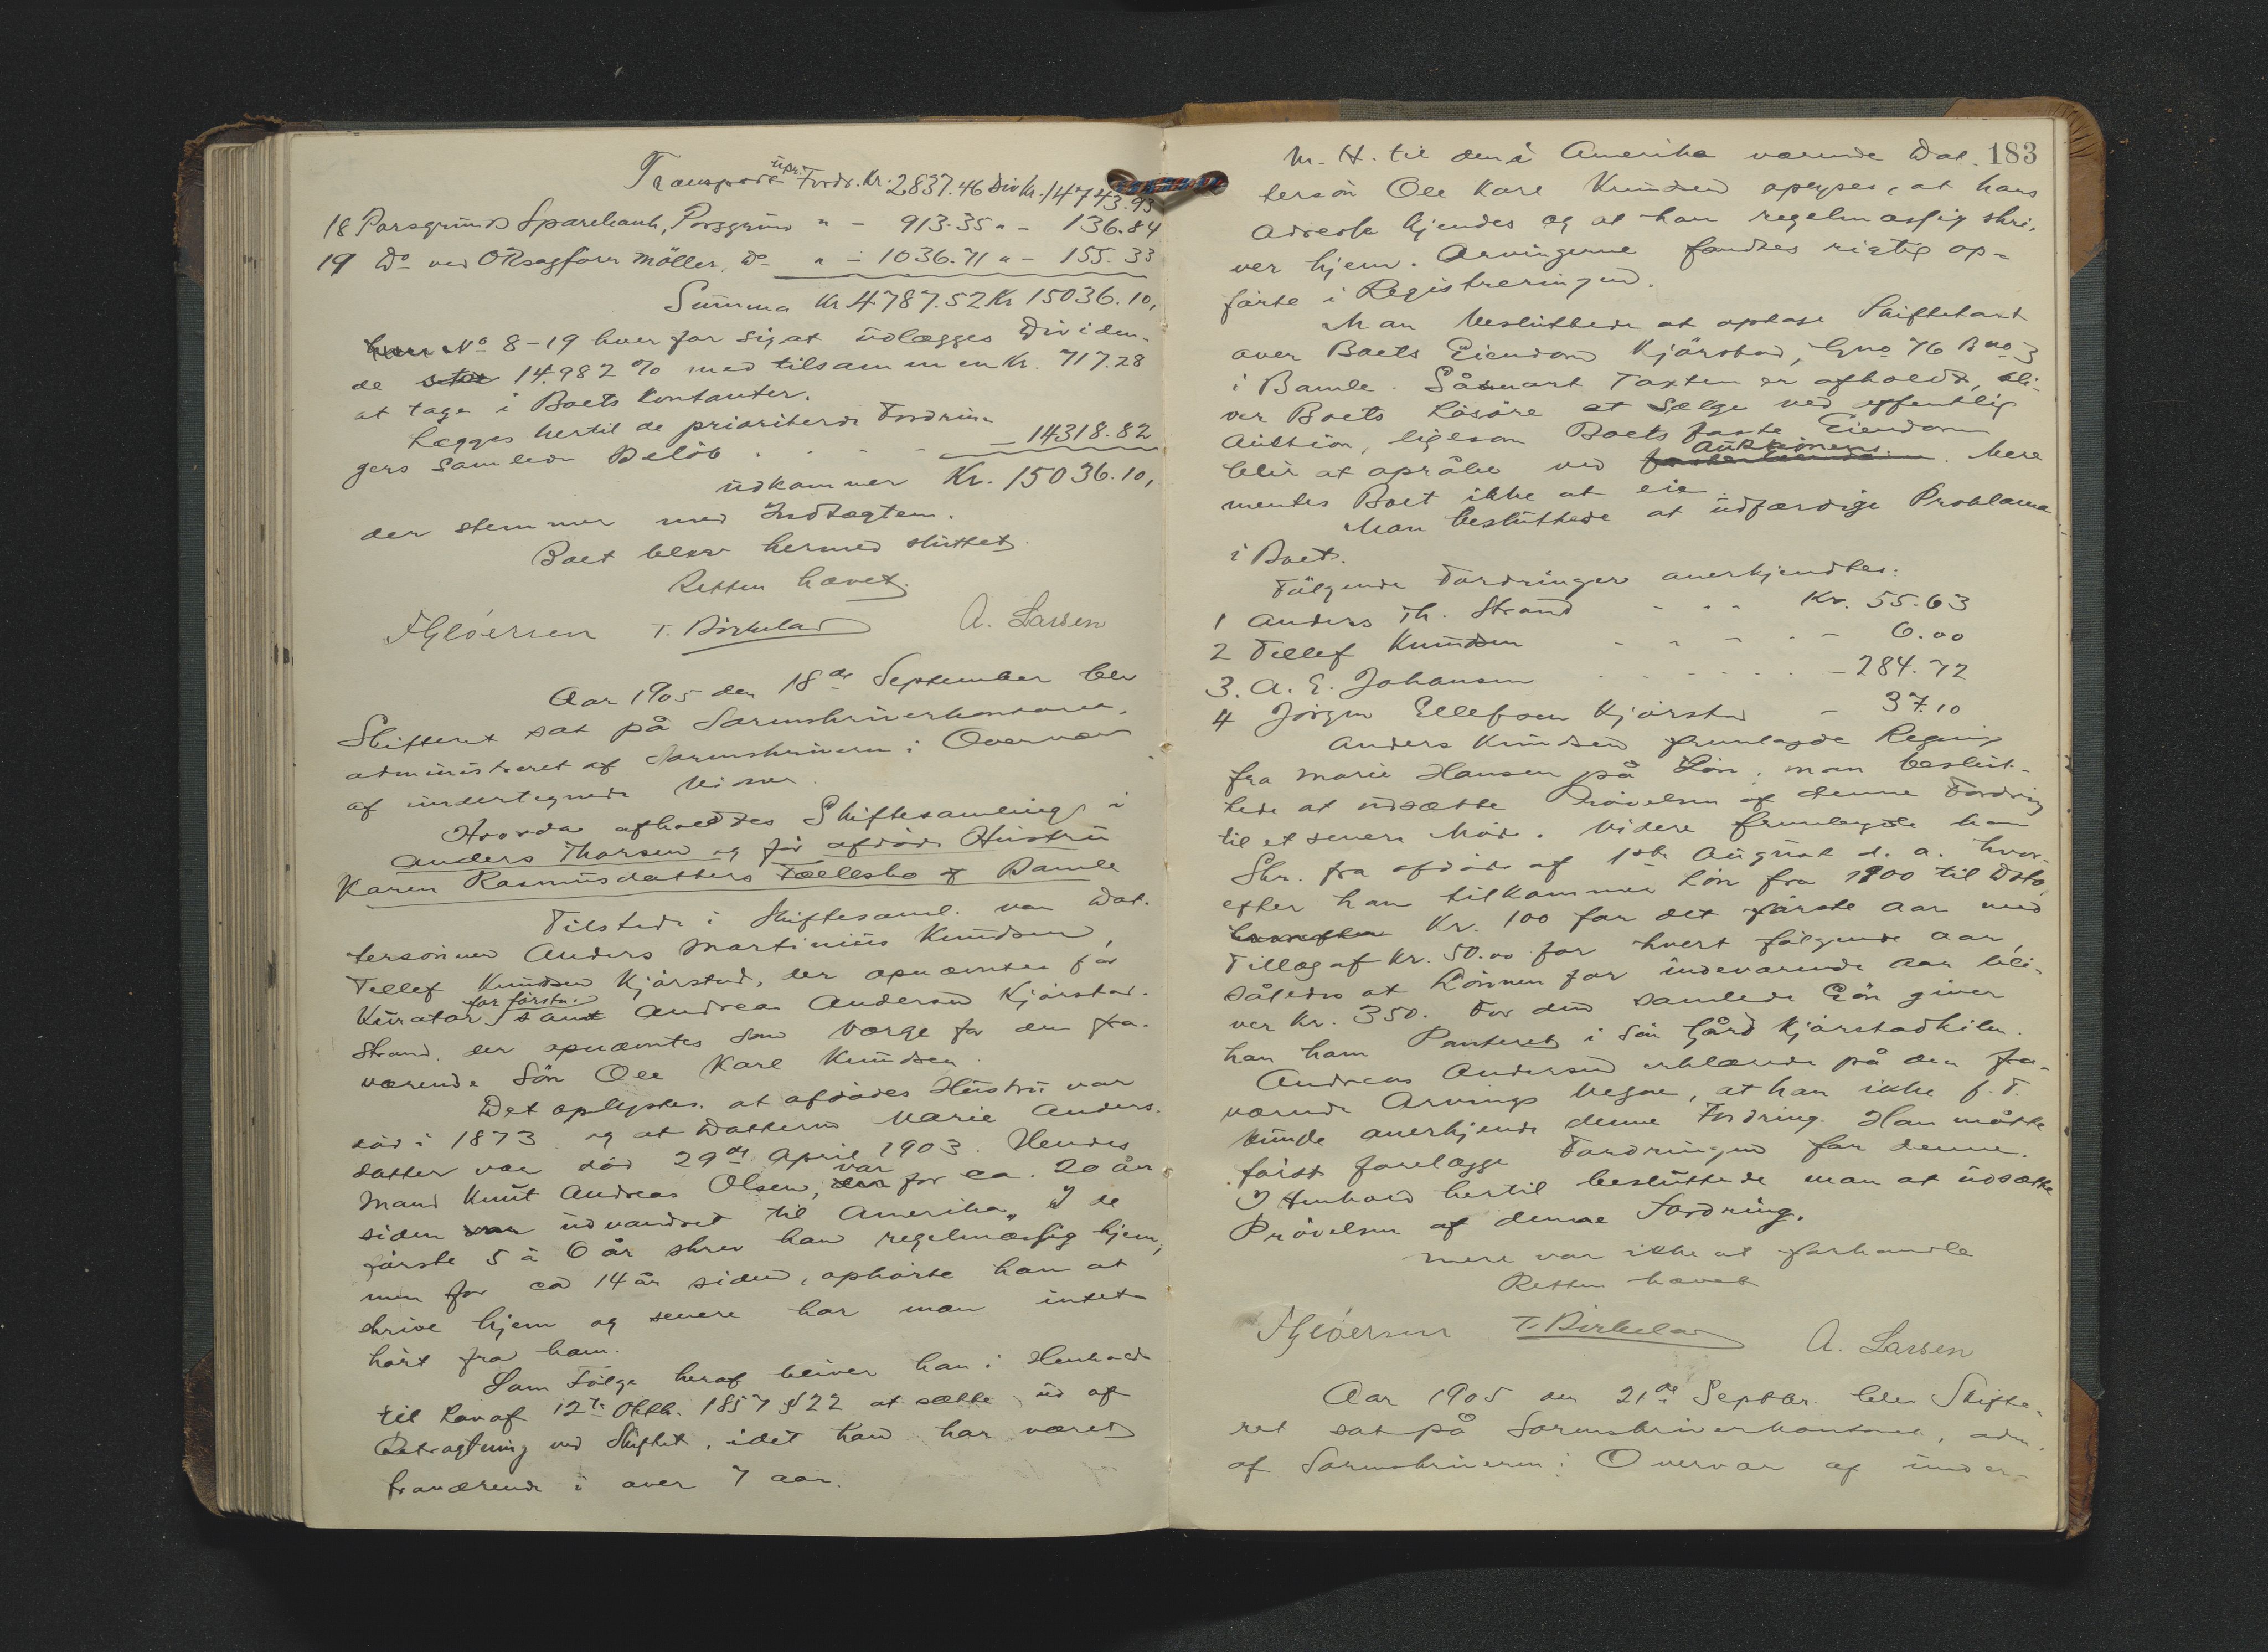 Transport upr. Fordr. Kr. 2837.46 Div Kr. 14743.93
18 Porsgrunds Sparebank, Porsgrund " - 913.35 " - 136.84
19 Do ved ORsagfører Möller, Do " - 1036.71 " - 155.33
Summa Kr 4787.52 Kr 15036.10,
No 8-19 hver for sig at udlægges Dividen-
de 14.982 % med tilsammen Kr. 717.28
at tage i Boets Kontanter.
Lægges hertil de prioriterede Fordrin-
gers samlede Beløb . . . - 14318.82
udkommer Kr. 15036.10,
der stemmer med Indtægten.
Boet blev hermed sluttet.
Retten hævet.
T. Birkeland A. Larsen
Aar 1905 den 18de September blev
Skifteret sat på Sorenskriverkontoret,
administreret af Sorenskriveren i Overvær
af undertegnede Vidner.
Hvorda afholdtes Skiftesamling i
Anders Thorsen og før afdöde Hustru
Karen Rasmusdatters Fællesbo af Bamle
Tilstede i Skiftesaml. var Dat-
tersønnen Anders Martinius Knudsen,
Tellef Knudsen Kjörstad, der opnævntes før
Kurator for förstn. samt Andreas Andersen Kjörstad-
Strand, der opnævntes som Værge for den fra-
værende Sön Ole Karl Knudsen.
Det oplystes, at afdödes Hustru var
död i 1873 og at Datteren Marie Anders-
datter var död 29de April 1903. Hendes
Mand Knut Andreas Olsen, var for ca. 20 år
siden udvandret til Amerika. I de
förste 5 à 6 år skrev han regelmæssig hjem,
men for ca 14 år siden, ophörte han at
skrive hjem og senere har man intet
hört fra ham.
Som Fölge heraf bliver han i Henhold
til Lov af 12te Oktb. 1857 § 22 at sætte ud af
Betragtning ved Skiftet, idet han har været
fraværende i over 7 aar.
183
M. H. til den i Amerika værende Dat-
tersön Ole Karl Knudsen oplyses, at hans
Adresse kjendes og at han regelmæssig skri-
ver hjem. Arvingerne fandtes rigtig op-
förte i Registreringen.
Man besluttede at optage Skiftetaxt
over Boets Eiendom Kjörstad, Gno 76 Bno 3
i Bamle. Såsnart Taxten er afholdt, bli-
ver Boets Lösöre at sælge ved offentlig
Auktion, ligesom Boets faste Eiendom
blir at opråbe ved Auktionen. Mere
mentes Boet ikke at eie.
Man besluttede at udfærdige Proklama
i Boet.
Fölgende Fordringer anerkjendtes:
1 Anders Th. Strand - - - Kr. 55.63
2 Tellef Knudsen - - - - - 6.00
3. A. E. Johansen . . . . . - 284.72
4 Jörgen Ellefsen Kjörstad - 37.10
Anders Knudsen fremlagde Regning
fra Marie Hansen på Lön; man beslut-
tede at udsætte Prövelsen af denne Fordring
til et senere Möde. Videre fremlagde han
Skr. fra afdöde af 1ste August d. a. hvor-
efter han tilkommer Lön fra 1900 til Dato,
Kr. 100 for det förste Aar med
Tillæg af Kr. 50.00 for hvert fölgende Aar,
således at Lönnen for indeværende Aar bli-
ver Kr. 350. For den samlede Lön giver
han ham Panteret i sin Gård Kjörstadkilen.
Andreas Andersen erklærede på den fra-
værende Arvings Vegne, at han ikke f. T.
kunde anerkjende denne Fordring. Han måtte
först forelægge Fordringen for denne.
I Henhold hertil besluttede man at udsætte
Prövelsen af denne Fordring.
Mere var ikke at forhandle
Retten hævet
T. Birkeland A. Larsen
Aar 1905 den 21de Septbr. blev Skifte-
ret sat på Sorenskriverkontoret, adm.
af Sorenskriveren i Overvær af under-